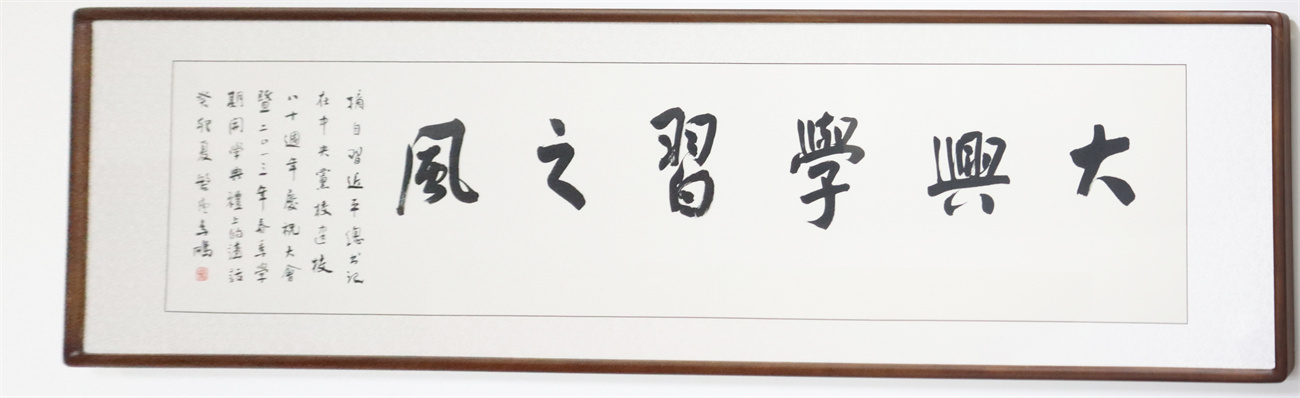 大興學習之風
摘自習近平總书记
在中央黨校建校
八十週年慶祝大會
暨二〇一三年春季學
期開學典禮上的講話
癸卯夏